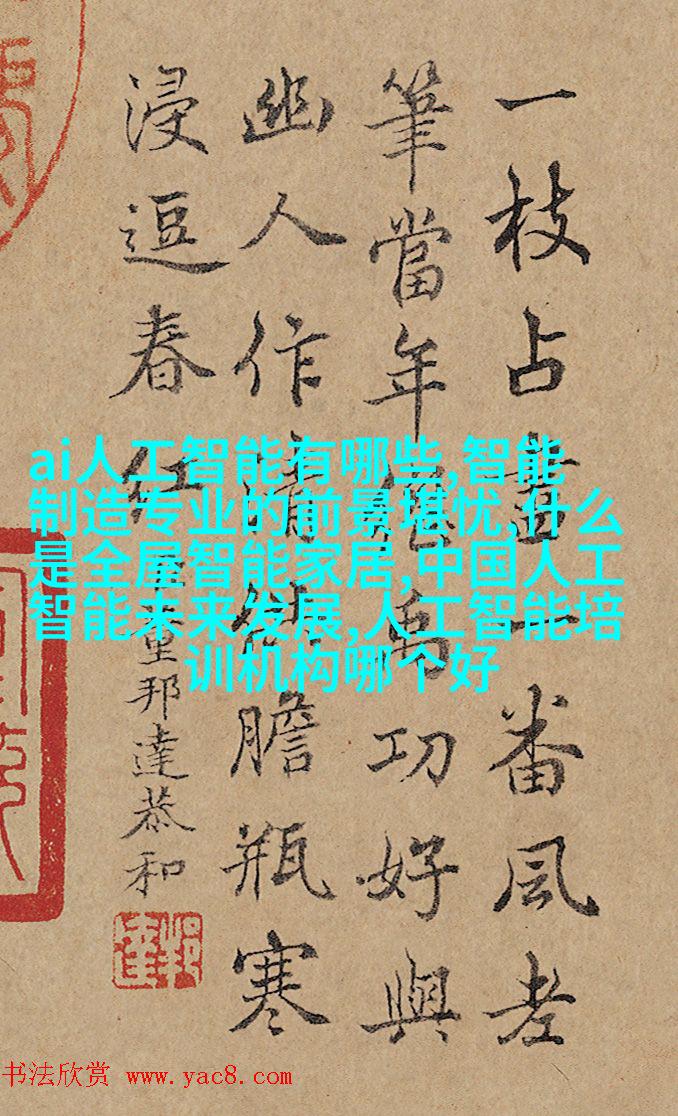 一枝占一番風老
筆當年功好與
幽人作清供膽瓶寒
浸逗春紅
臣董邦達恭和
邦達
ai人工智能有哪些,智能
制造专业的前景堪忧,什么
是全屋智能家居,中国人工
智能未来发展,人工智能培
训机构哪个好
书法欣赏 www.yac8.com